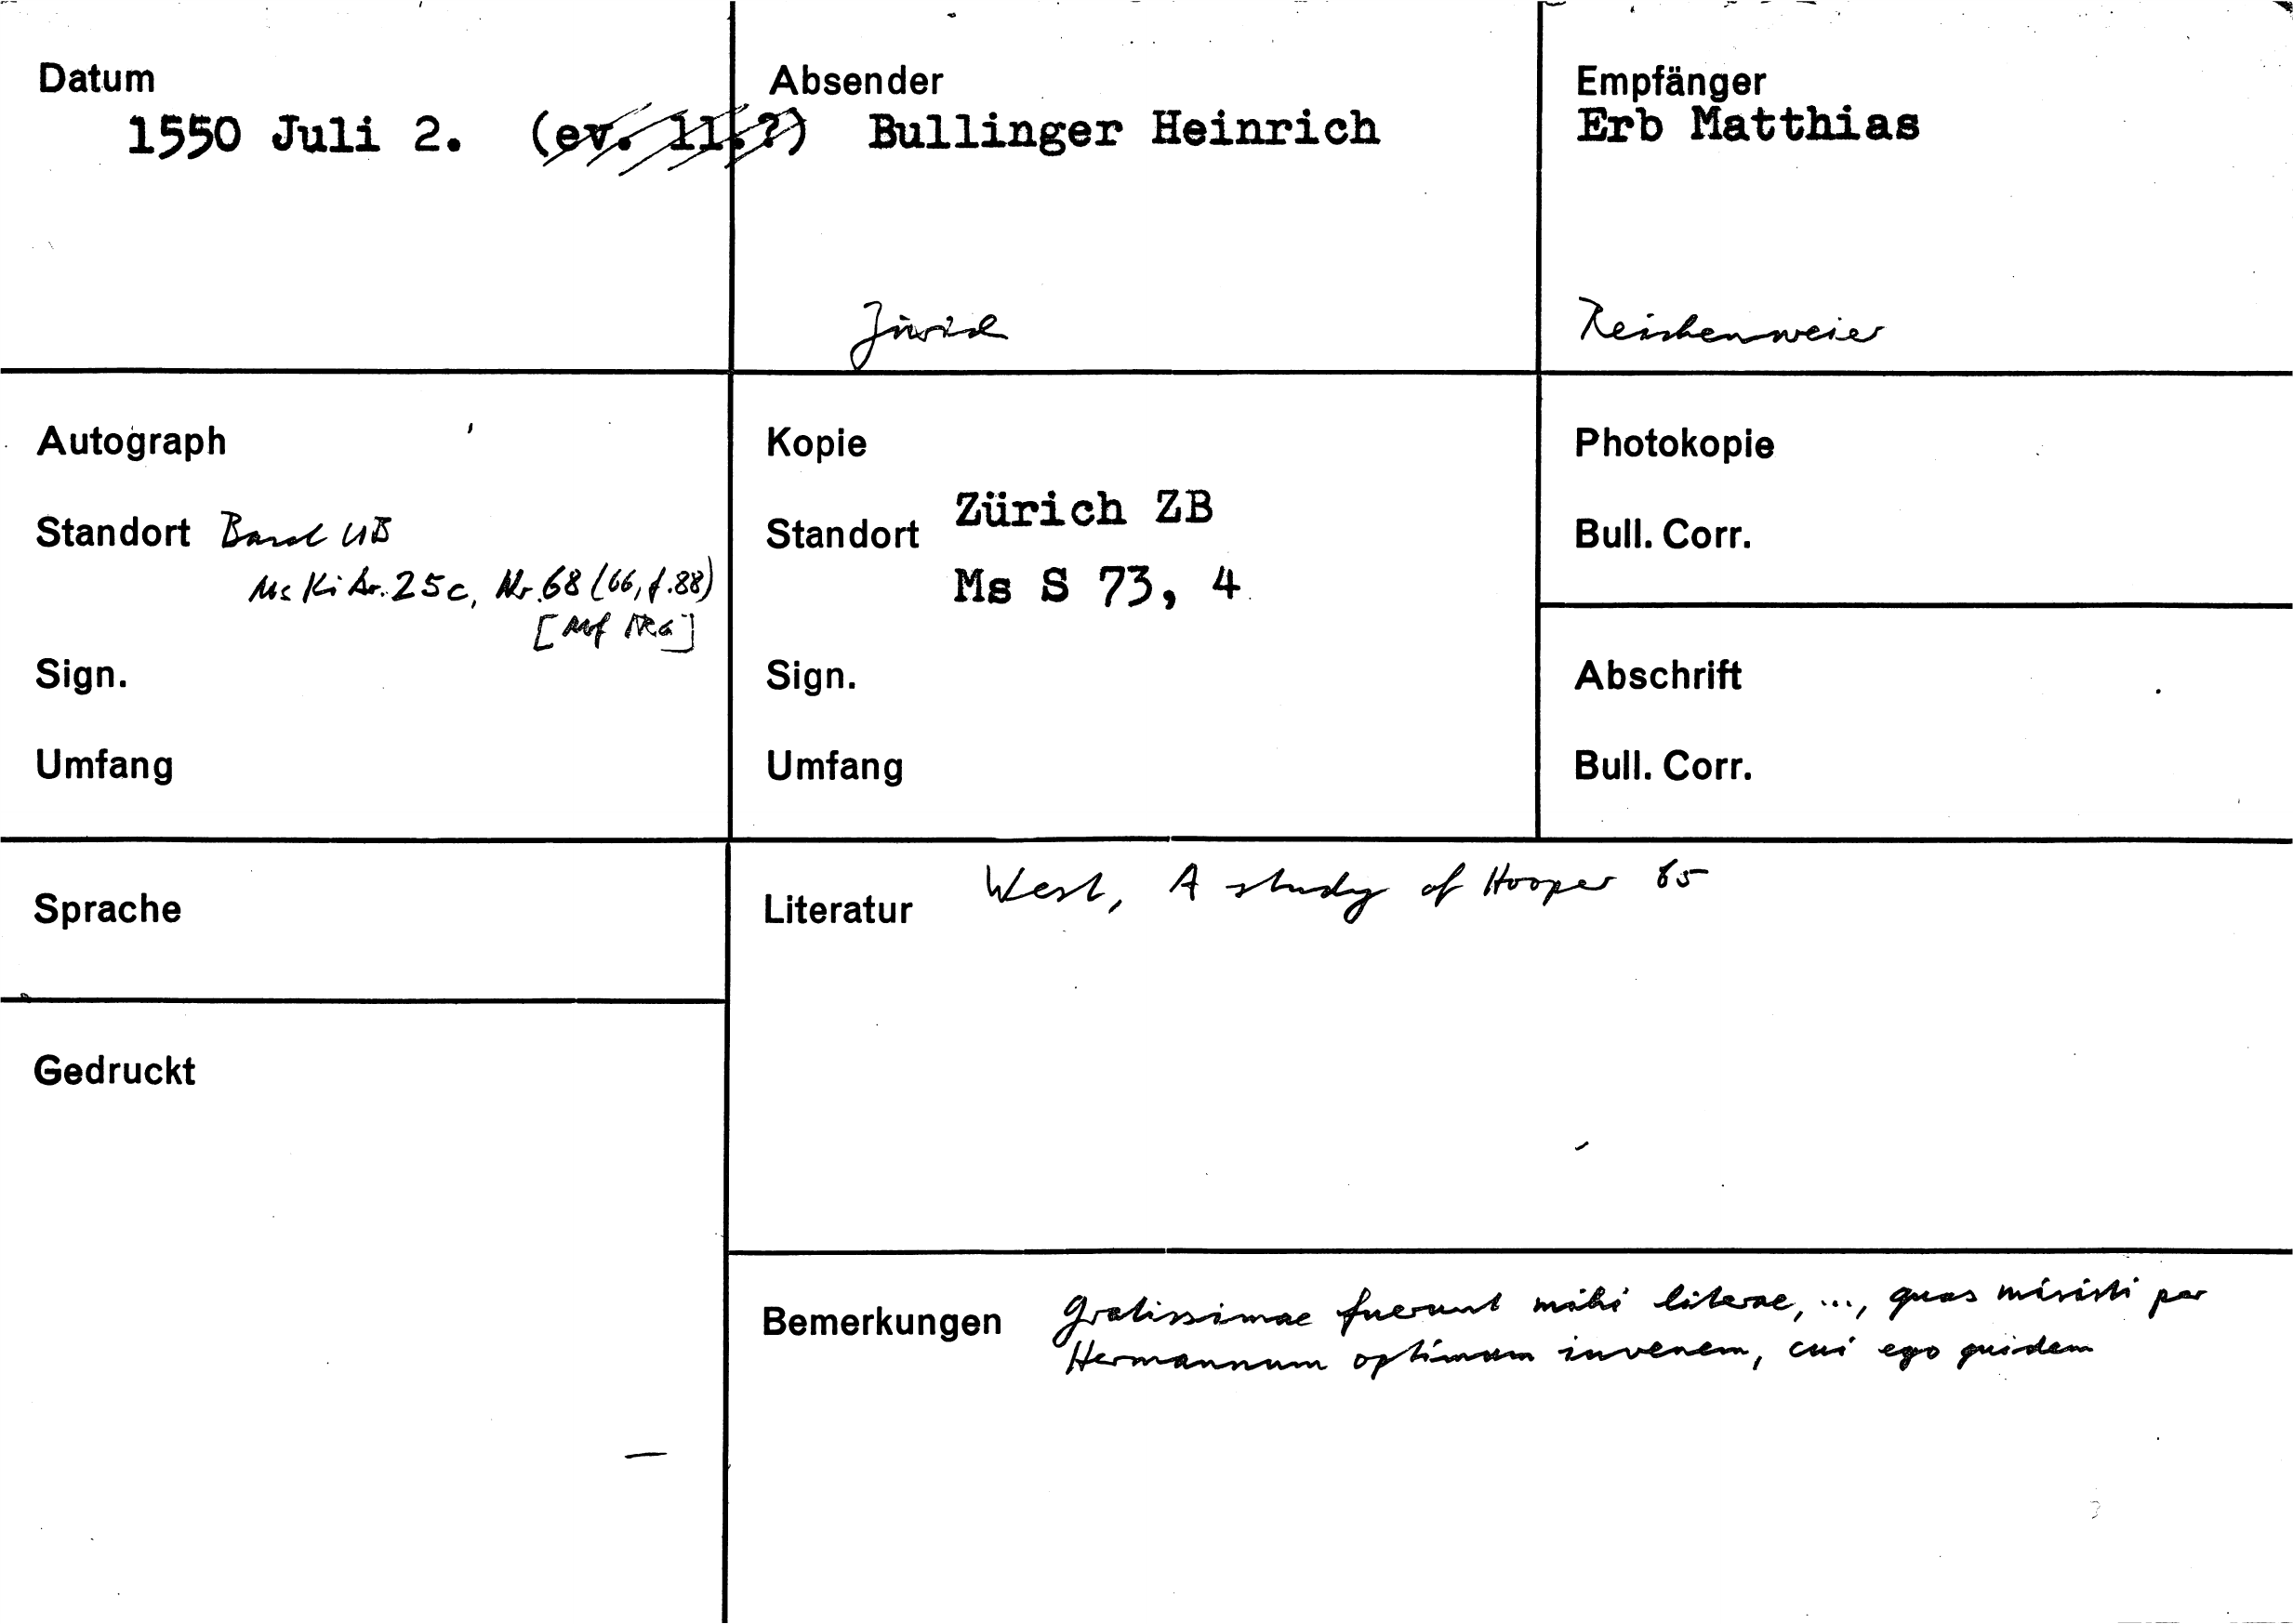 Datum
1550 Juli 2. (ev. 11.?)
Absender
Bullinger Heinrich
Zürich
Empfänger
Erb Matthias
Reichenweier
Autograph
Standort Basel UB
Ms Ki Ar. 25c, Nr. 68 (66, f. 88)
[Mf IRG]
Sign.
Umfang
Kopie
Standort Zürich ZB
Ms S 73, 4
Sign.
Umfang
Photokopie
Bull. Corr.
Abschrift
Bull. Corr.
Sprache
Gedruckt
Literatur West, A study of Hooper 65
Bemerkungen Gratissimae fuerunt mihi literae, ..., quas misisti per
Hermannum optimum iuvenem, cui ego quidem